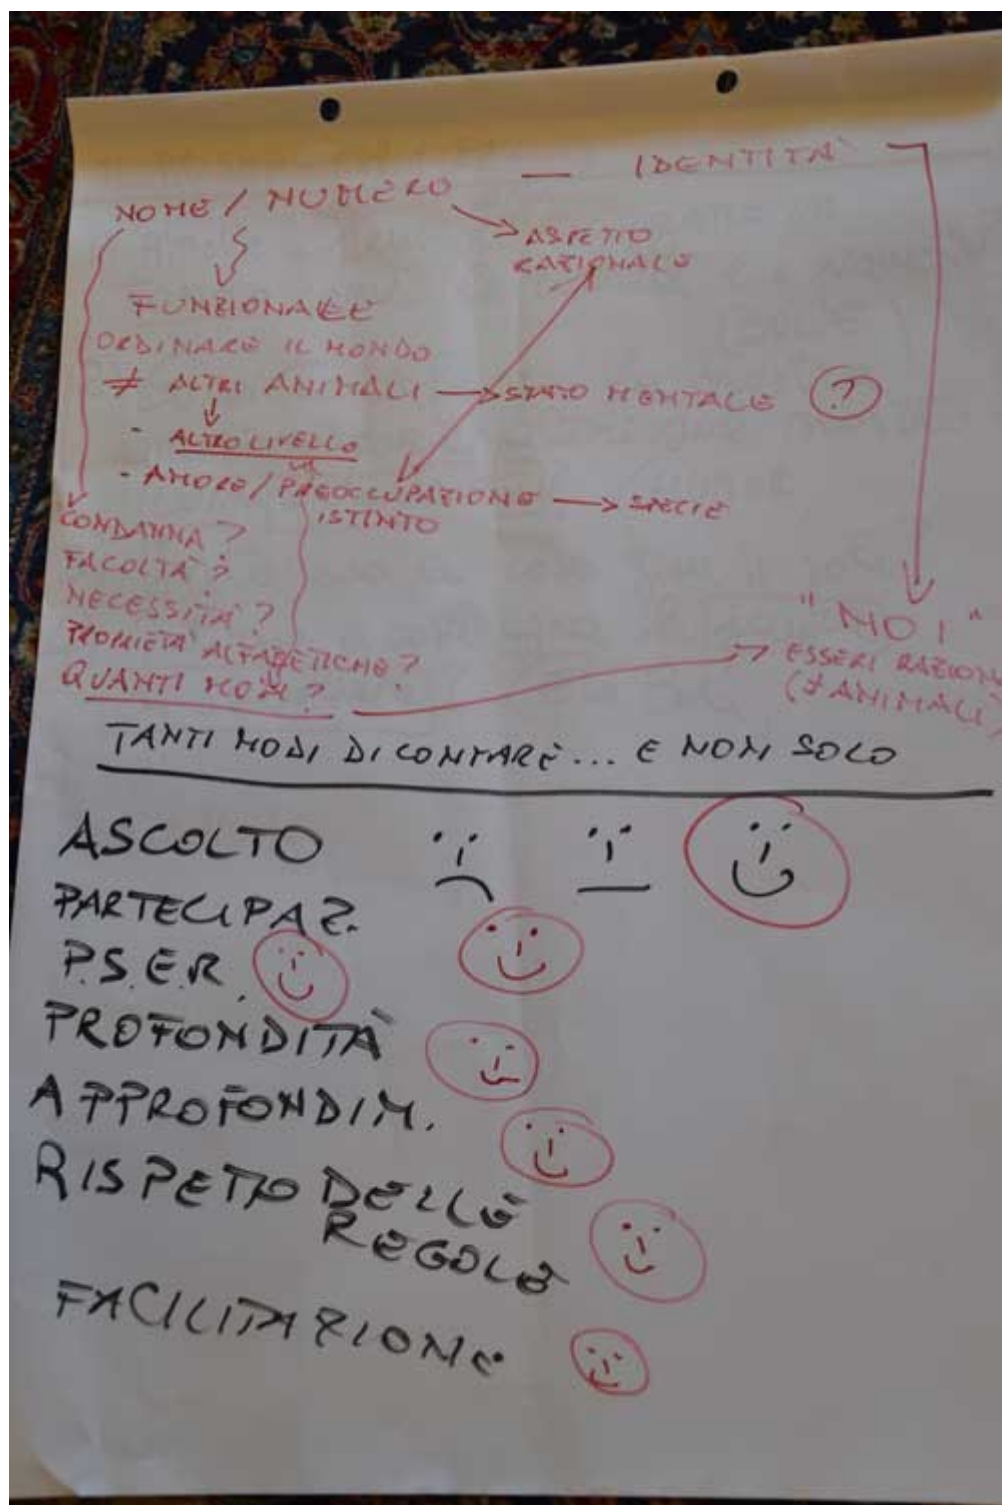 NOME / NUMERO — IDENTITÀ
ASPETTO
RAZIONALE
FUNZIONALE
ORDINARE IL MONDO
≠ ALTRI ANIMALI → STATO MENTALE ?
- ALTRO LIVELLO
- AMORE / PREOCCUPAZIONE → SPECIE
ISTINTO
CONDANNA?
FACOLTÀ?
NECESSITÀ?
PROPRIETÀ ALFABETICHE?
QUANTI NOMI?
"NOI"
ESSERI RAZION
(≠ ANIMALI)
TANTI MODI DI CONTARE... E NON SOLO
ASCOLTO
PARTECIPAZ.
P.S.E.R.
PROFONDITÀ
APPROFONDIM.
RISPETTO DELLE
REGOLE
FACILITAZIONE